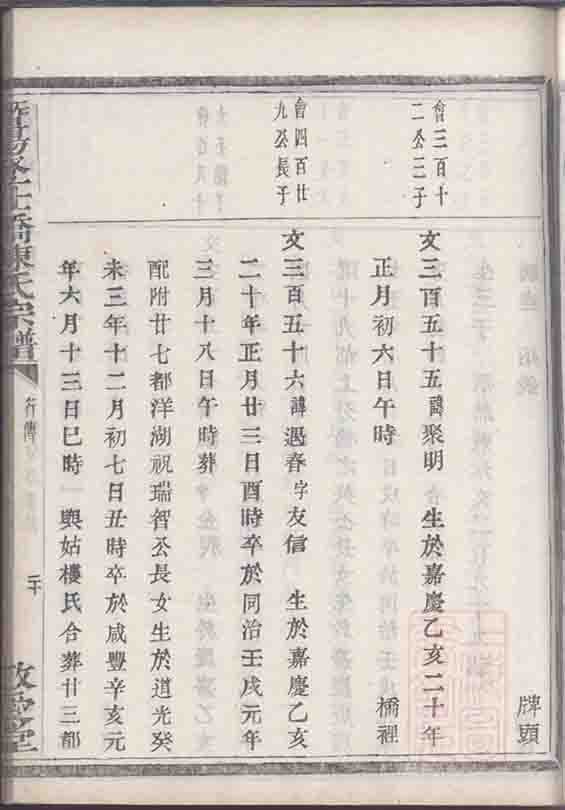 牌頭
會三百十
二公三子
文三百五十五諱聚明 生於嘉慶乙亥二十年
正月初六日午時 橋裡
會四百廿
九公長子
文三百五十六諱遇春字友信 生於嘉慶乙亥
二十年正月廿三日酉時卒於同治壬戌元年
三月十八日午時葬
配附廿七都洋湖祝瑞智公長女生於道光癸
未三年十二月初七日丑時卒於咸豐辛亥元
年六月十三日巳時 與姑樓氏合葬廿三都
橋陳氏宗譜
行傳
二十